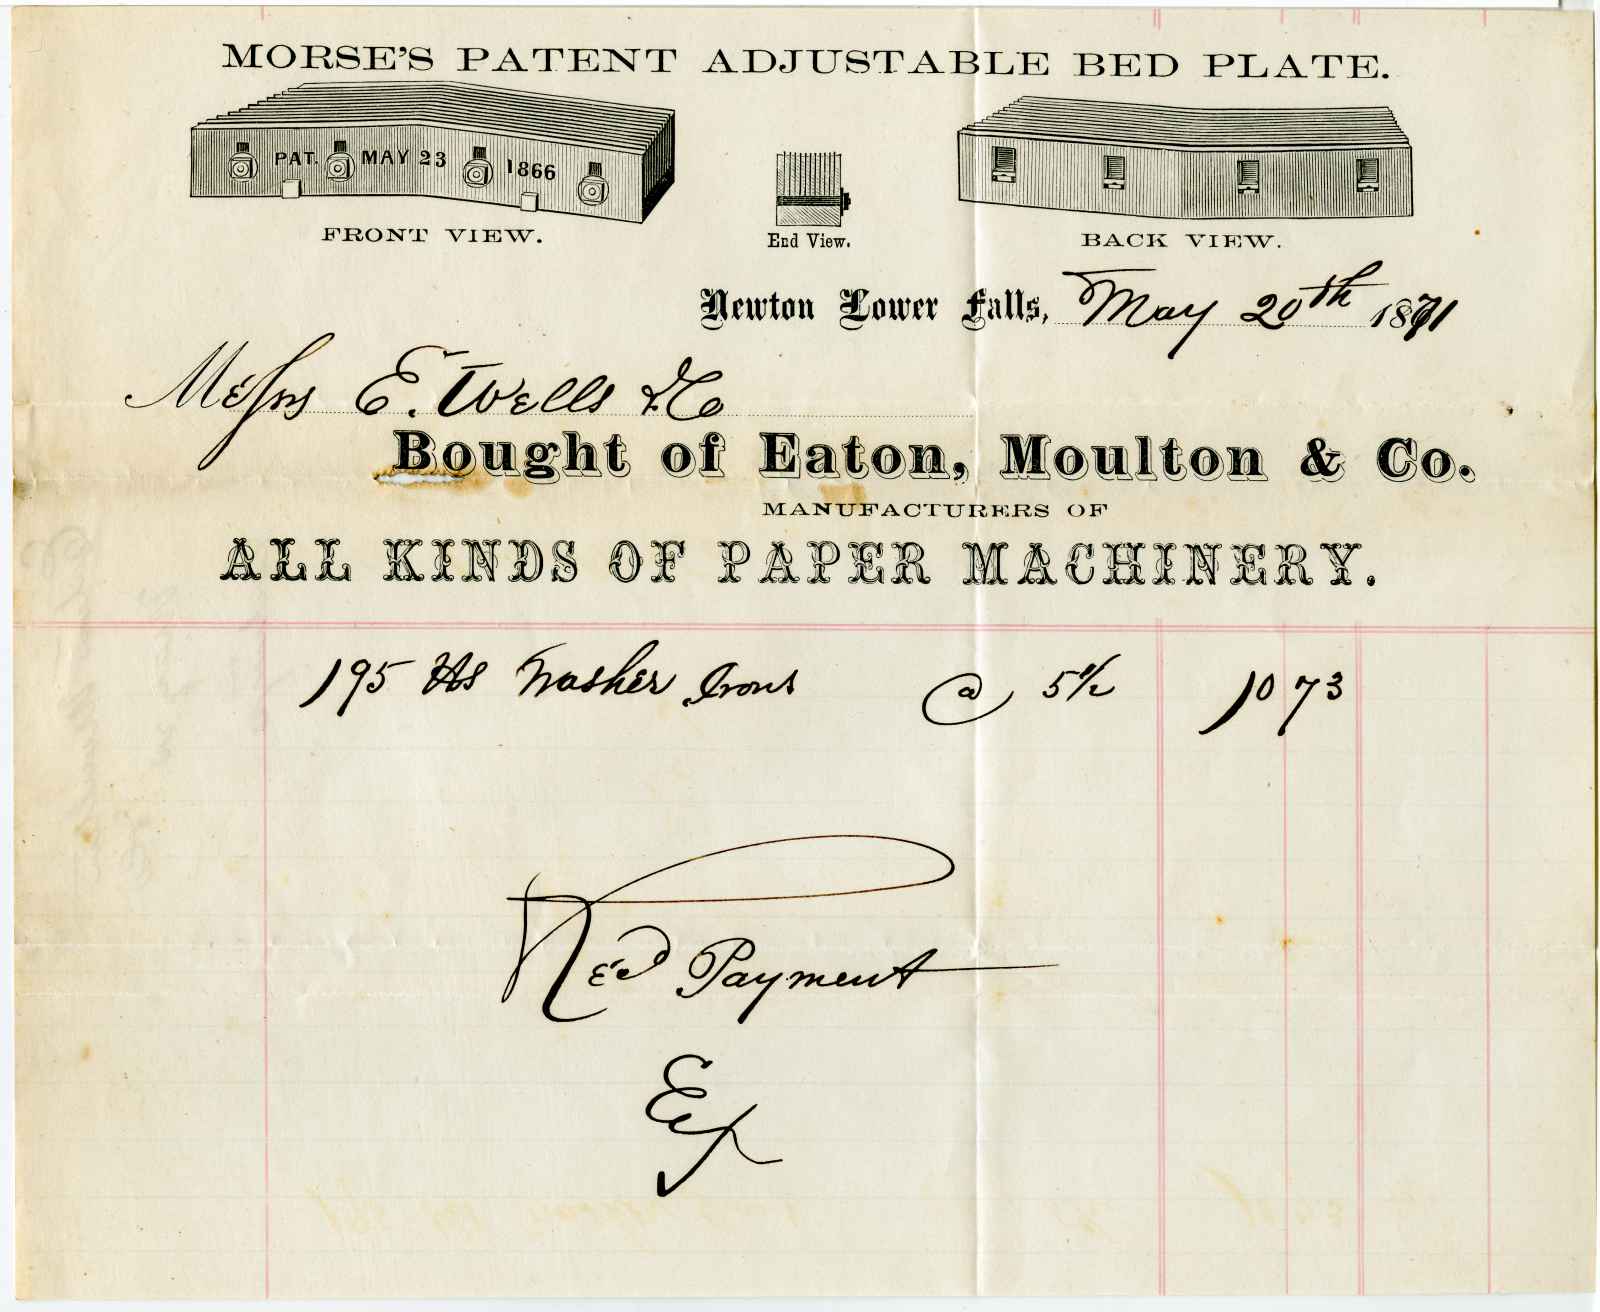 MORSE'S PATENT ADJUSTABLE BED PLATE.
PAT. MAY 23 1866
FRONT VIEW.
End View.
BACK VIEW.
Newton Lower Falls, May 20th 1871
Messrs E. Wells & Co
Bought of Eaton, Moulton & Co.
MANUFACTURERS OF
ALL KINDS OF PAPER MACHINERY.
195 lbs Washer Irons @ 5½ 10 73
Rec'd Payment